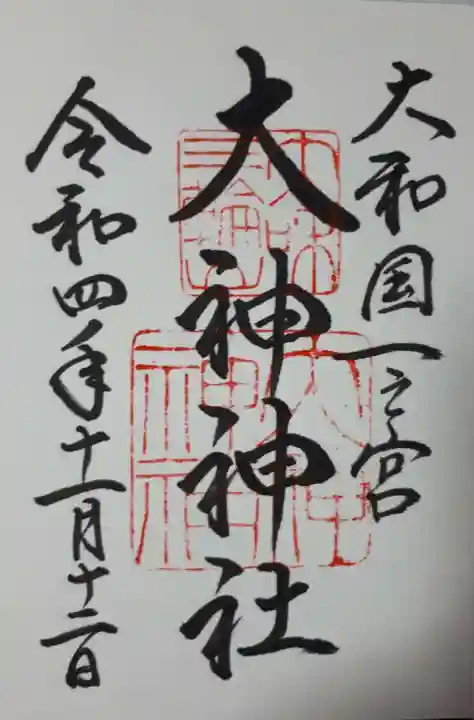 大和国一之宮
大神神社
大神
神社
令和四年十一月十二日